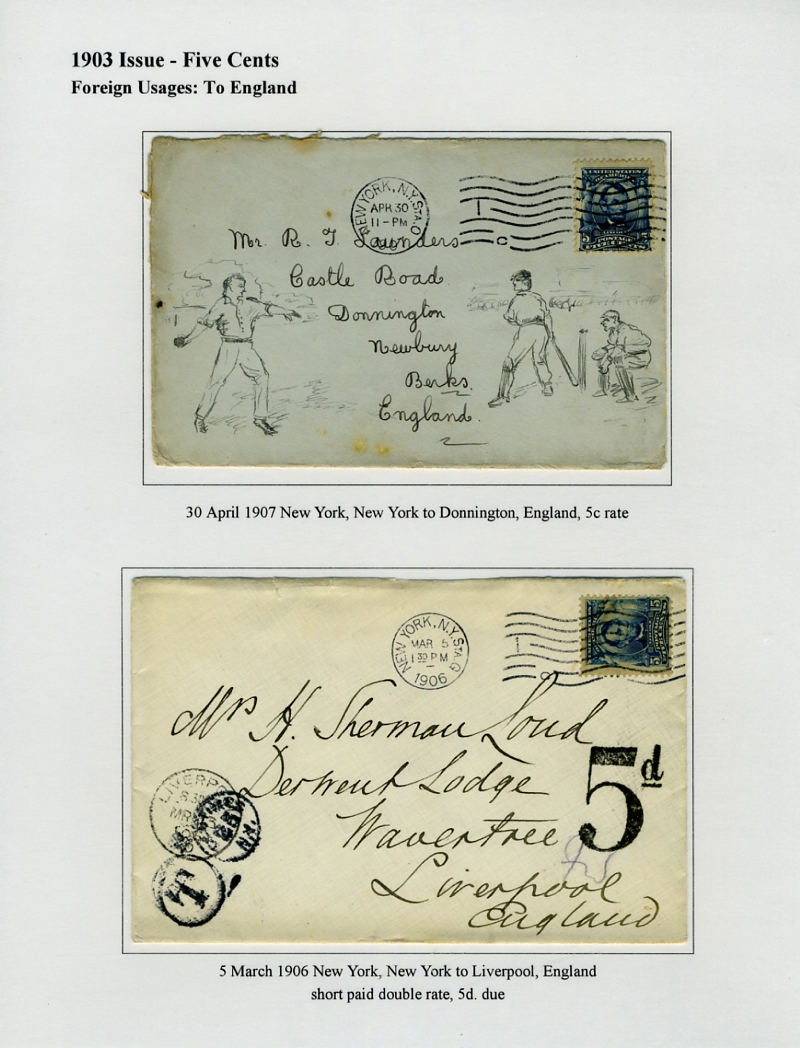 1903 Issue - Five Cents
Foreign Usages: To England
NEW YORK, N.Y. STA. O
APR 30
11-PM
1
C
UNITED STATES
OF AMERICA
5 POSTAGE 5
FIVE CENTS
Mr. R. J. Saunders
Castle Road
Donnington
Newbury
Berks.
England.
30 April 1907 New York, New York to Donnington, England, 5c rate
NEW YORK, N.Y. STA. G
MAR 5
1 30 PM
1906
1
5
5
Mrs H. Sherman Loud
Derwent Lodge
Wavertree
Liverpool
England
5d
LIVERP
MR
T
N.Y.
5 March 1906 New York, New York to Liverpool, England
short paid double rate, 5d. due